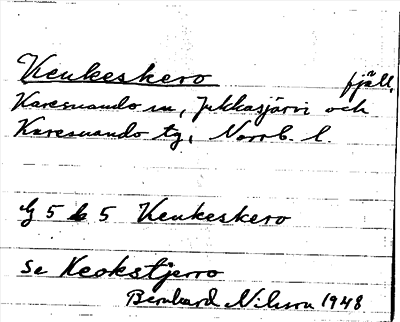 Keukeskero fjäll,
Karesuando sn, Jukkasjärvi och
Karesuando tg, Norrb. l.
G 5 b 5 Keukeskero
Se Keokstjerro
Bernhard Nilsson 1948